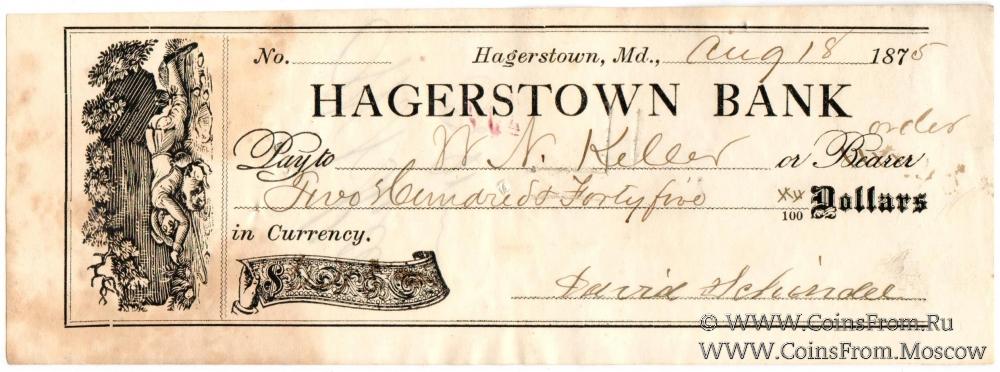 No. Hagerstown, Md., Aug 18 1875
HAGERSTOWN BANK
order
Pay to W. N. Keller or Bearer
Two Hundred & Forty five xx/100 Dollars
in Currency.
$
David Schindel
© WWW.CoinsFrom.Ru
WWW.CoinsFrom.Moscow